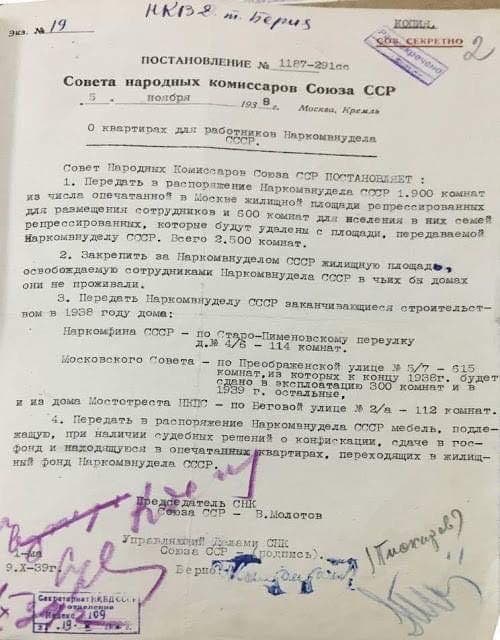 Экз. № 19
НКВД т. Берия
КОПИЯ.
СОВ. СЕКРЕТНО
Рассекречено
2
ПОСТАНОВЛЕНИЕ № 1187-291сс
Совета народных комиссаров Союза ССР
5 . ноября 1938 г. Москва, Кремль
О квартирах для работников Наркомвнудела
СССР.
Совет Народных Комиссаров Союза ССР ПОСТАНОВЛЯЕТ :
1. Передать в распоряжение Наркомвнудела СССР 1.900 комнат
из числа опечатанной в Москве жилищной площади репрессированных
для размещения сотрудников и 600 комнат для вселения в них семей
репрессированных, которые будут удалены с площади, передаваемой
Наркомвнуделу СССР. Всего 2.500 комнат.
2. Закрепить за Наркомвнуделом СССР жилищную площадь,
освобождаемую сотрудниками Наркомвнудела СССР в чьих бы домах
они не проживали.
3. Передать Наркомвнуделу СССР заканчивающиеся строительст-
вом в 1938 году дома:
Наркомфина СССР - по Старо-Пименовскому переулку
д.№ 4/6 - 114 комнат.
Московского Совета - по Преображенской улице № 5/7 - 615
комнат,из которых к концу 1938г. будет
сдано в эксплоатацию 300 комнат и в
1939 г. остальные,
и из дома Мостотреста НКПС - по Беговой улице № 2/а - 112 комнат.
4. Передать в распоряжение Наркомвнудела СССР мебель, подле-
жащую, при наличии судебных решений о конфискации, сдаче в гос-
фонд и находящуюся в опечатанных квартирах, переходящих в жилищ-
ный фонд Наркомвнудела СССР.
Председатель СНК
Союза ССР - В.Молотов
Управляющий Делами СНК
Союза ССР -(подпись).
1-ма
9.X-39г.
Верно:
Секретариат НКВД СССР
отделение
Индекс 109
19